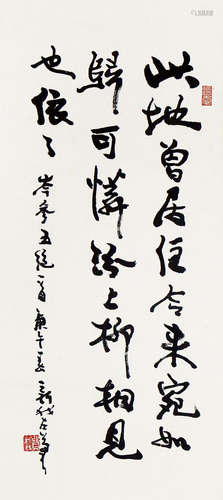 此地曾居住今來宛如
歸可憐汾上柳相見
也依々 岑參五絕一首 庚午夏 新我左筆